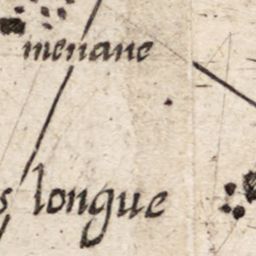 menane
s longue